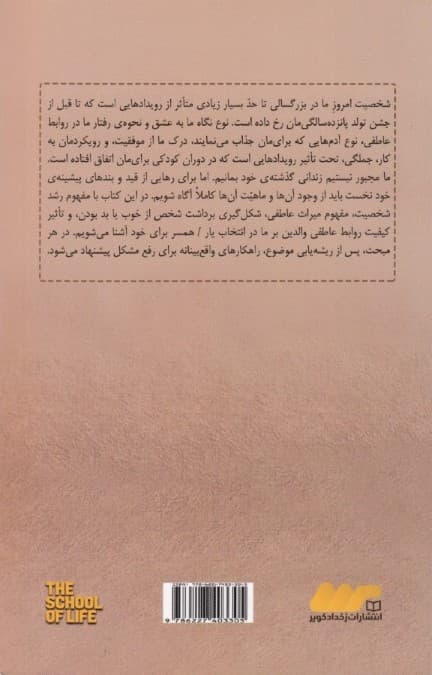 شخصیت امروز ما در بزرگسالی تا حدّ بسیار زیادی متأثر از رویدادهایی است که تا قبل از
جشن تولد پانزده‌سالگی‌مان رخ داده است. نوع نگاه ما به عشق و نحوه‌ی رفتار ما در روابط
عاطفی، نوع آدم‌هایی که برای‌مان جذاب می‌نمایند، درک ما از موفقیت، و رویکردمان به
کار، جملگی، تحت تأثیر رویدادهایی است که در دوران کودکی برای‌مان اتفاق افتاده است.
ما مجبور نیستیم زندانی گذشته‌ی خود بمانیم. اما برای رهایی از قید و بندهای پیشینه‌ی
خود نخست باید از وجود آن‌ها و ماهیّت آن‌ها کاملاً آگاه شویم. در این کتاب با مفهوم رشد
شخصیت، مفهوم میراث عاطفی، شکل‌گیری برداشت شخص از خوب یا بد بودن، و تأثیر
کیفیت روابط عاطفی والدین بر ما در انتخاب یار / همسر برای خود آشنا می‌شویم. در هر
مبحث، پس از ریشه‌یابی موضوع، راهکارهای واقع‌بینانه برای رفع مشکل پیشنهاد می‌شود.
THE
SCHOOL
OF LIFE
9 786227 403305
انتشارات رخداد کویر